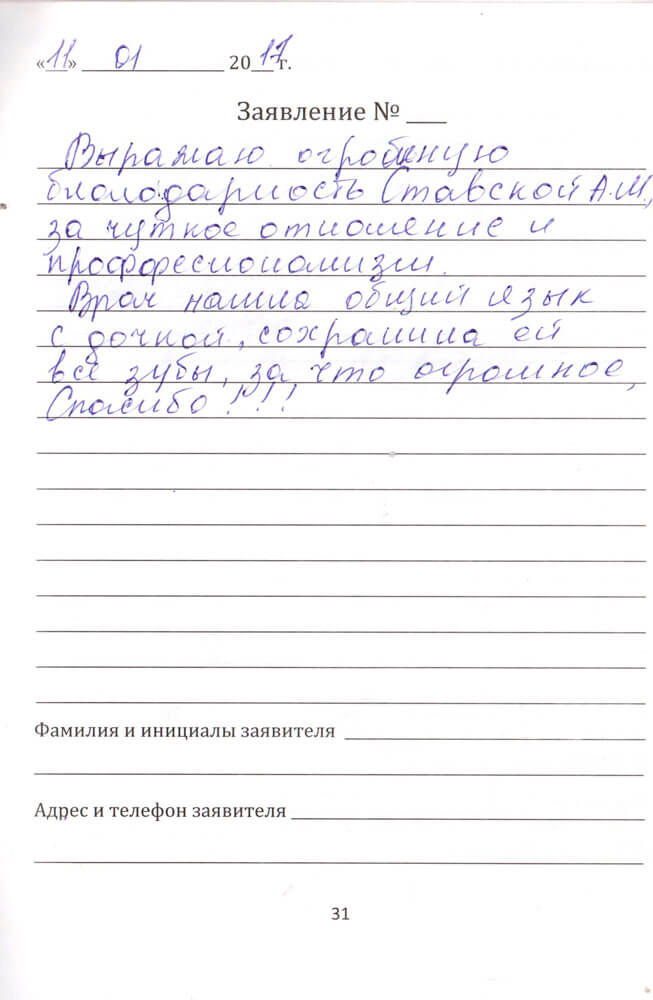 «11» 01 2017 г.
Заявление № ___
Выражаю огромную
благодарность Ставской А.М.,
за чуткое отношение и
профессионализм.
Врач нашла общий язык
с дочкой, сохранила ей
все зубы, за что огромное,
Спасибо!!!
Фамилия и инициалы заявителя
Адрес и телефон заявителя
31